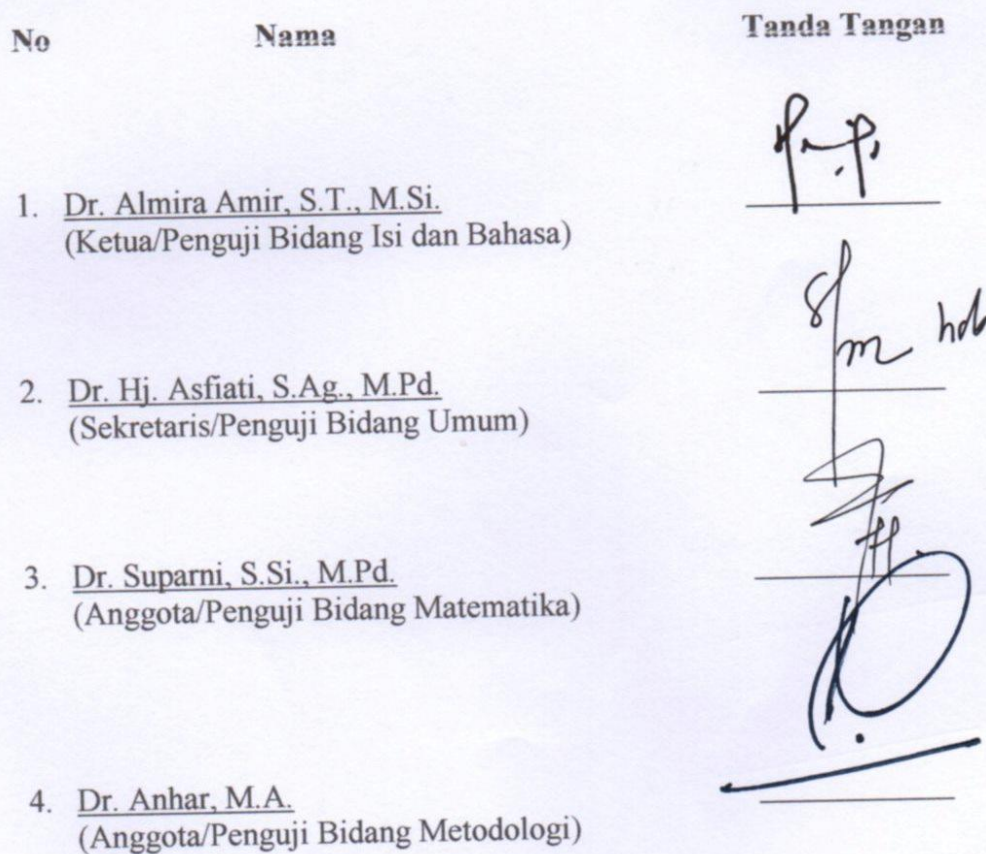 No Nama Tanda Tangan
1. Dr. Almira Amir, S.T., M.Si.
(Ketua/Penguji Bidang Isi dan Bahasa)
2. Dr. Hj. Asfiati, S.Ag., M.Pd.
(Sekretaris/Penguji Bidang Umum)
3. Dr. Suparni, S.Si., M.Pd.
(Anggota/Penguji Bidang Matematika)
4. Dr. Anhar, M.A.
(Anggota/Penguji Bidang Metodologi)